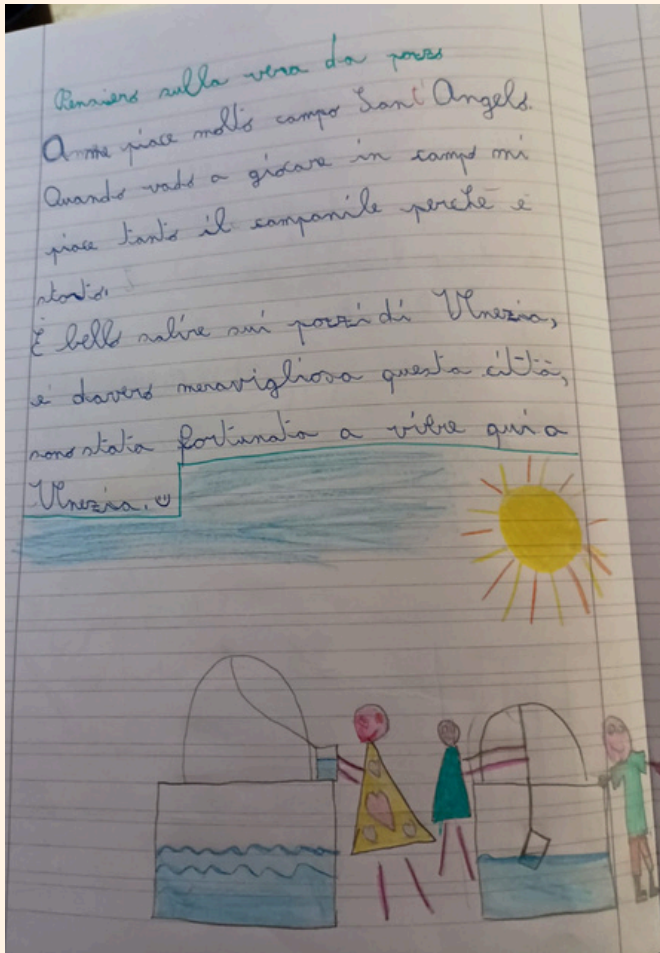 Pensiero sulla vera da pozzo
A me piace molto campo Sant'Angelo.
Quando vado a giocare in campo mi
piace tanto il campanile perchè è
storto.
È bello salire sui pozzi di Venezia,
è davvero meravigliosa questa città,
sono stata fortunata a vivere qui a
Venezia. ☺